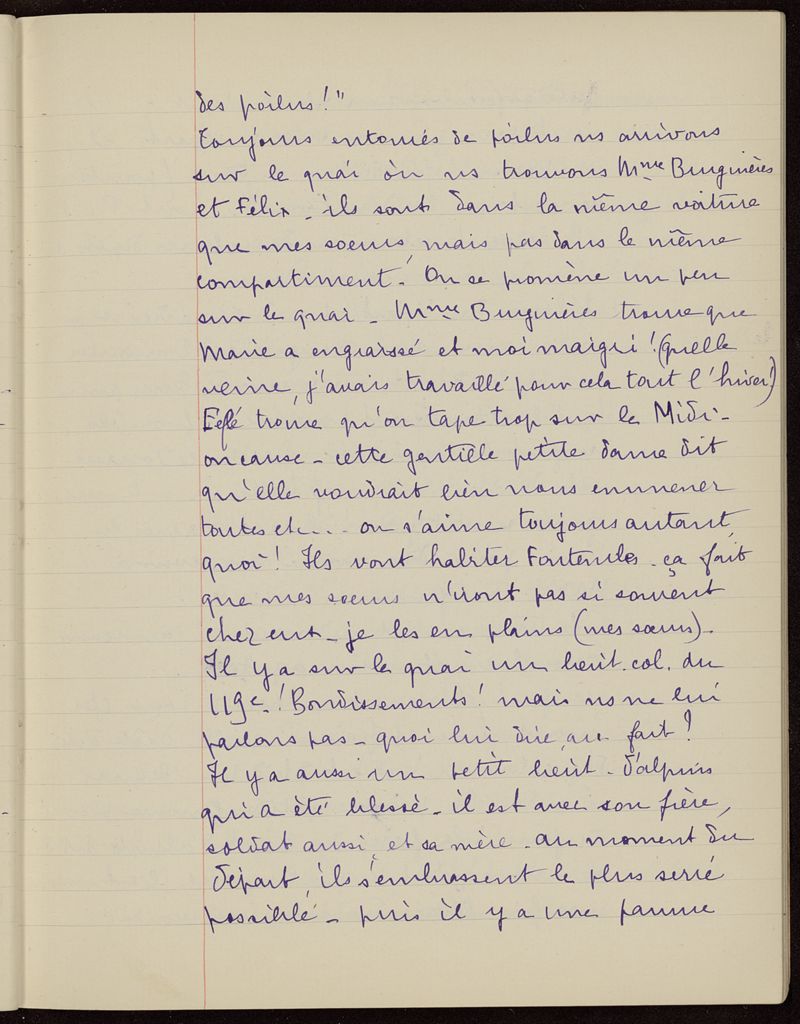 des poilus !"
Toujours entourés de poilus ns arrivons
sur le quai où ns trouvons Mme Burguières
et Félix - ils sont dans la même voiture
que mes soeurs, mais pas dans le même
compartiment. On se promène un peu
sur le quai - Mme Burguières trouve que
Marie a engraissé et moi maigri ! (Quelle
veine, j'avais travaillé pour cela tout l'hiver !)
Eflé trouve qu'on tape trop sur le Midi -
on cause - cette gentille petite dame dit
qu'elle voudrait bien nous emmener
toutes et... on s'aime toujours autant,
quoi ! Ils vont habiter Fontenles - ça fait
que mes soeurs n'iront pas si souvent
chez eux - je les en plains (mes soeurs).
Il y a sur le quai un lieut. col. du
119e ! Bondissements ! mais ns ne lui
parlons pas - quoi lui dire, au fait ?
Il y a aussi un petit lieut. d'alpins
qui a été blessé - il est avec son frère,
soldat aussi, et sa mère. au moment du
départ, ils s'embrassent le plus serré
possible - puis il y a une pauvre